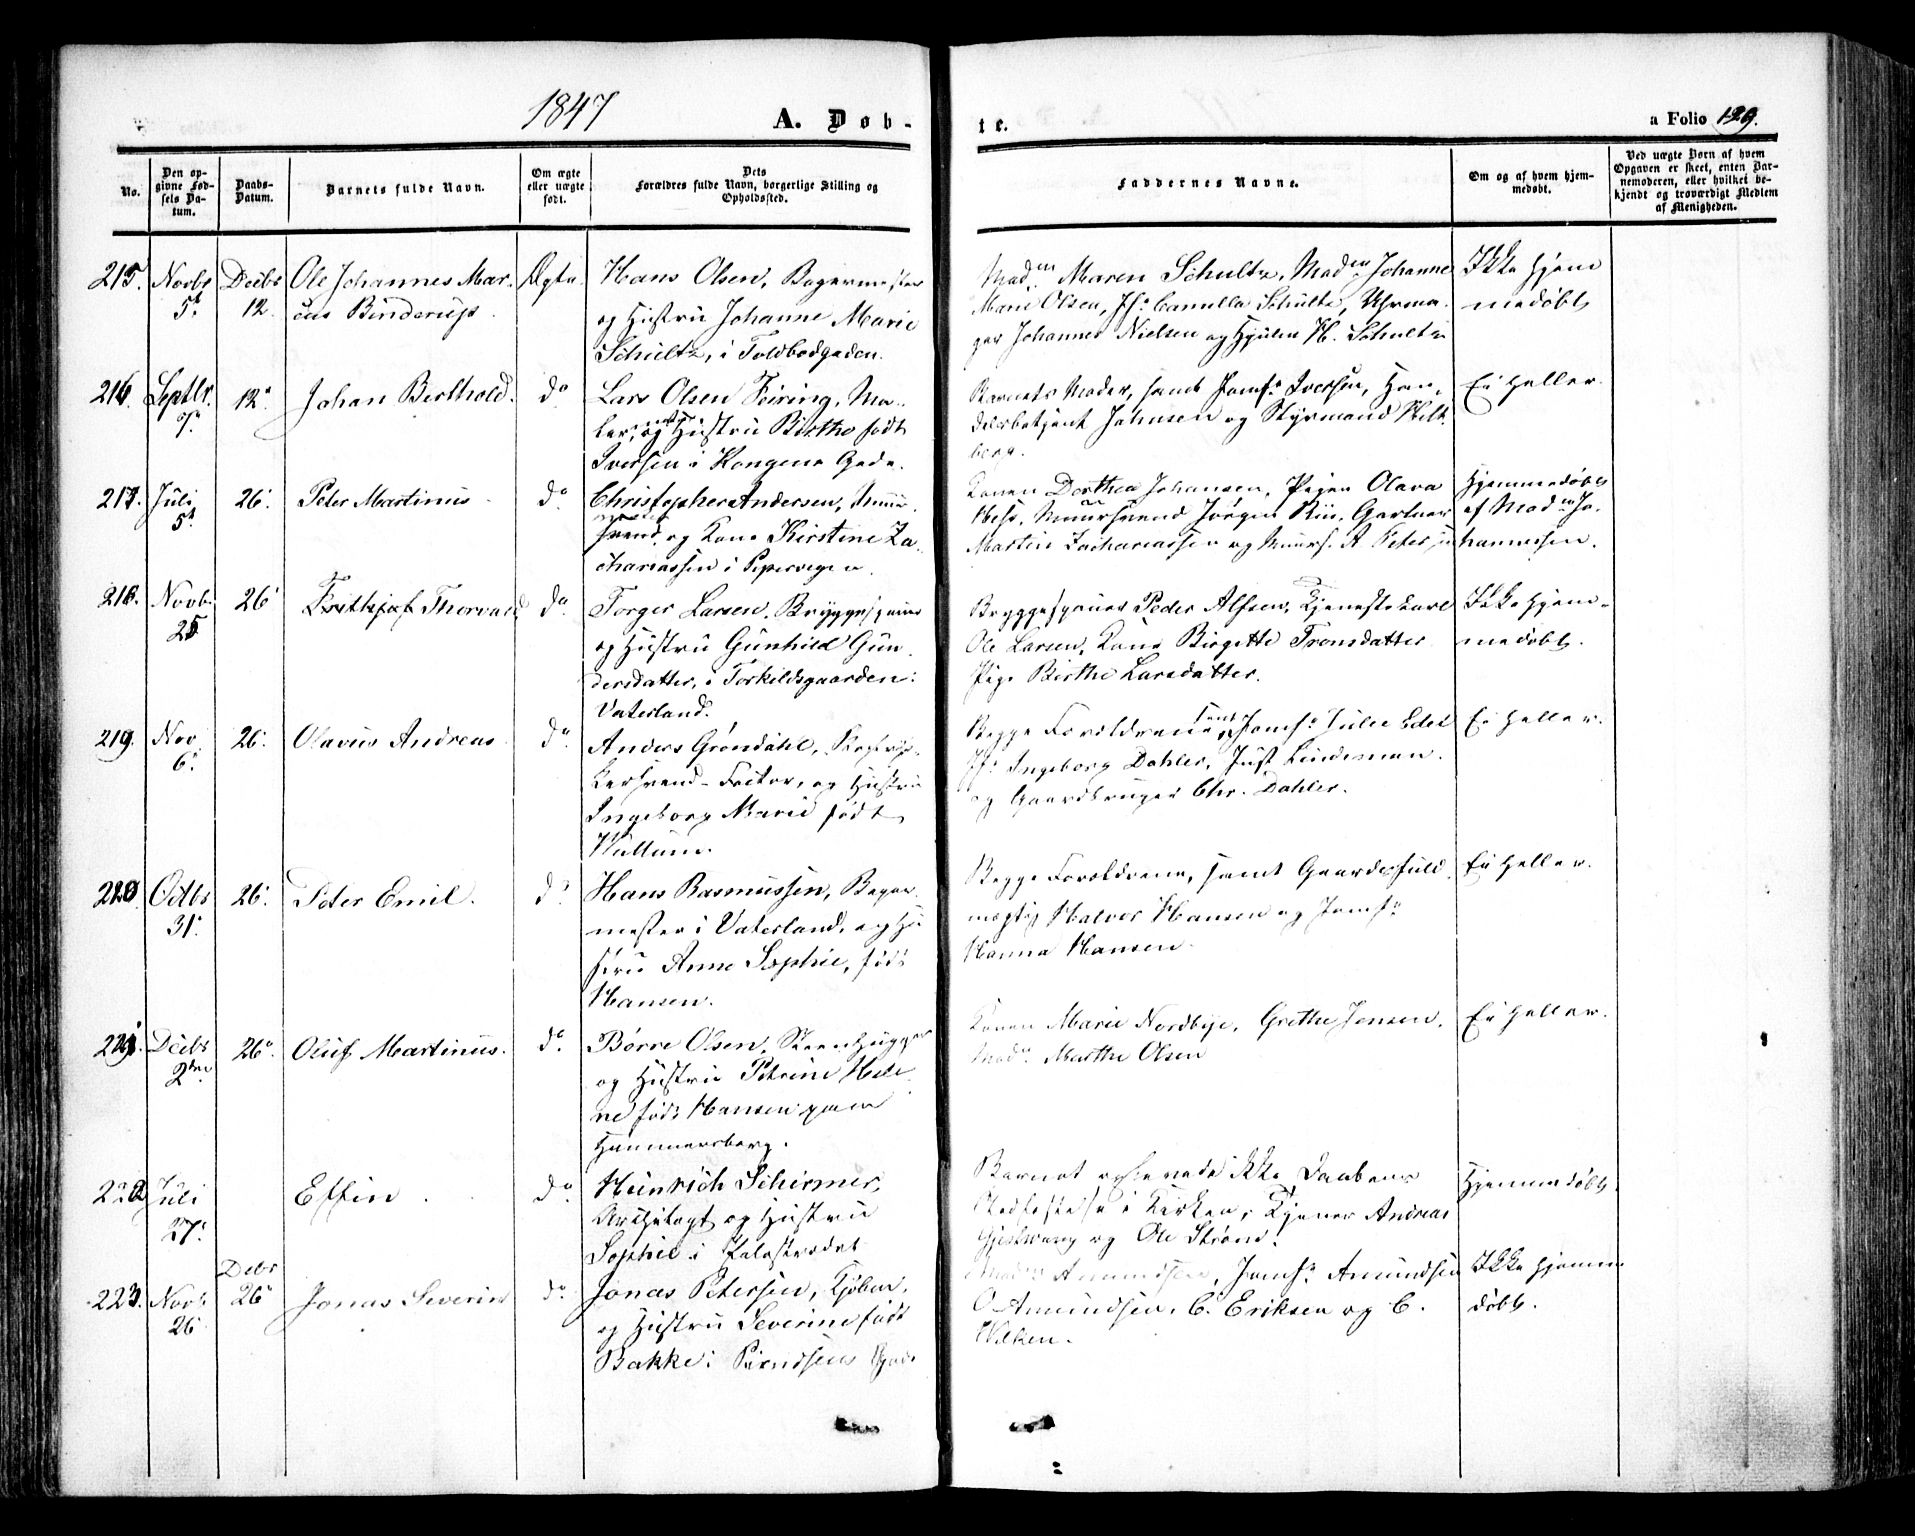 1847
A. Døb-
te.
a Folio 129.
No.
Den opgivne Fødsels Datum.
Daabs-Datum.
Barnets fulde Navn.
Om ægte eller uægte født.
Dets Forældres fulde Navn, borgerlige Stilling og Opholdssted.
Faddernes Navne.
Om og af hvem hjemmedøbt.
Ved uægte Børn af hvem Opgaven er skeet, enten Barnemoderen, eller hvilket bekjendt og troværdigt Medlem af Menigheden.
215. Novbr Decbr Ole Johannes Mar- Ægte Hans Olsen, Bagermester
5t 12 cus Binderup.
og Hustru Johanne Marie
Schultz, i Toldbodgaden.
Madm Maren Schultz, Madm Johanne
Marie Olsen, Jfr Camilla Schultz, Uhrma-
ger Johannes Nielsen og H. Schultz
Ikke hjem
medøbt
216. Septbr. 12 Johan Berthold. do Lars Olsen Feiring, Ma-
7
ler, og Hustru Birthe født
Iversen i Kongens Gade.
Barnets Moder, samt Jomfr Iversen, Han-
delsbetjent Johnsen og Styrmand
berg.
Ei heller.
217. Juli 26 Peter Martinus do Christopher Andersen, Muur-
5t
svend og Kone Kirstine Za-
chariassen i Pipervigen.
Konen Dorthea Johansen, Pigen Olava
Muursvend Jörgen Gartner
Martin Zachariassen og Muurs. A. Peter
Hjemmedøbt
af Madm Jo-
hannessen.
218. Novbr 26 Frithjof Thorvald do Torger Larsen, Bryggesjouer
25
og Hustru Gunhild Gun-
dersdatter, i Torkildsgaarden
Vaterland.
Bryggesjouer Peder Alfsen, Tjenestekarl
Ole Larsen, Kone Birgitte Tronsdatter
Pige Birthe Larsdatter.
Ikke hjem-
medøbt.
219. Nov 26 Olavus Andreas do Anders Grøndahl,
6
kersvend-Factor, og Hustru
Ingeborg Marie født
Hullum.
Begge Forældrene samt Jomfr Julie
Jfr Ingeborg Dahler, Just Lindeman
og Gaardbruger Chr. Dahler.
Ei heller.
220 Octbr 26 Peter Emil. do Hans Rasmussen, Bager-
31
mester i Vaterland, og Hu-
stru Anne Sophie, født
Hansen.
Begge Forældrene, samt Gaardsfuld-
mægtig Halvor Hansen og Jomfr
Hanna Hansen.
Ei heller.
221. Decbr 26 Oluf Martinus. do Børre Olsen, Steenhugger
2den
og Hustru Petrine Hele-
ne født Hansen paa
Hammersborg.
Konen Marie Nordbye, Grethe Jensen,
Madm Marthe Olsen
Ei heller.
222 Juli Effin do Heinrich Schirmer,
27
Architegt og Hustru
Sophie i
Barnet oplevede ikke Daabens
Stadfæstelse i Kirken, Tjener Andreas
og Ole Strøm.
Hjemmedøbt.
223. Novbr Debr 26 Jonas Severin do Jonas Petersen, Kjøbm.
26
og Hustru Severine født
Bakke i
Madm Amundsen, Jomfr Amundsen
O Amundsen, C. Eriksen og C.
Wilken.
Ikke hjemme
døbt.